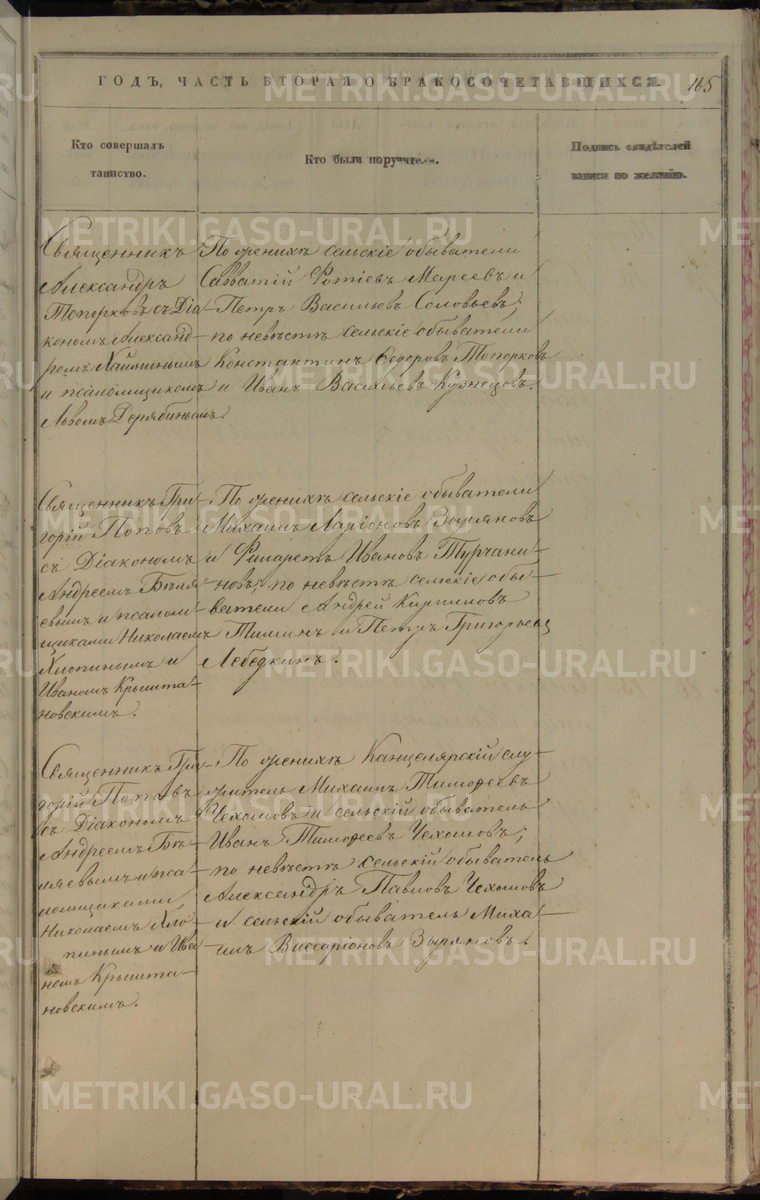 ГОДЪ, ЧАСТЬ ВТОРАЯ О БРАКОСОЧЕТАВШИХСЯ.
165
Кто совершалъ
таинство.
Кто были поручители.
Подпись свидѣтелей
записи по желанію.
Священникъ
Александръ
Топорковъ съ Діа-
кономъ Александ-
ромъ
и псаломщикомъ
Львомъ Герябинымъ.
По женихѣ сельскіе обыватели
Савватій Фотіевъ Мареевъ и
Петръ Васильевъ Соловьевъ;
по невѣстѣ сельскіе обыватели
Константинъ Ѳедоровъ Топорковъ
и Иванъ Васильевъ Кузнецовъ.
Священникъ Гри-
горій Поповъ
съ Діакономъ
Андреемъ Бѣля-
евымъ и псалом-
щиками Николаемъ
Хлопинымъ и
Иваномъ Кришта-
новскимъ.
По женихѣ сельскіе обыватели
Михаилъ Ларіоновъ Зыряновъ
и Филаретъ Ивановъ Турчани-
новъ; по невѣстѣ сельскіе обы-
ватели Андрей Кирилловъ
Тиминъ и Петръ Григорьевъ
Лебедкинъ.
Священникъ Гри-
горій Поповъ
съ Діакономъ
Андреемъ Бѣ-
ляевымъ и пса-
ломщиками
Николаемъ Хло-
пинымъ и Ива-
номъ Кришта-
новскимъ.
По женихѣ Канцелярскій слу-
житель Михаилъ Тимофеевъ
Чехомовъ и сельскій обыватель
Иванъ Тимофеевъ Чехомовъ;
по невѣстѣ сельскій обыватель
Александръ Павловъ Чехомовъ
и сельскій обыватель Миха-
илъ Виссаріоновъ Зыряновъ.
METRIKI.GASO-URAL.RU